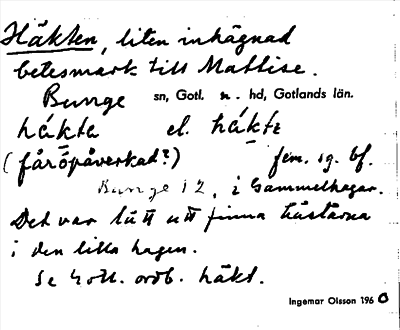 Häkten, liten inhägnad
betesmark till Mattise.
Bunge sn, Gotl. n. hd, Gotlands län.
häkta el. häkte
(fåröpåverkad?) fem. sg. bf.
Bunge 12, i Gammelhagar.
Det var lätt att finna hästarna
i den lilla hagen.
Se Gotl. ordb. häkt.
Ingemar Olsson 1960